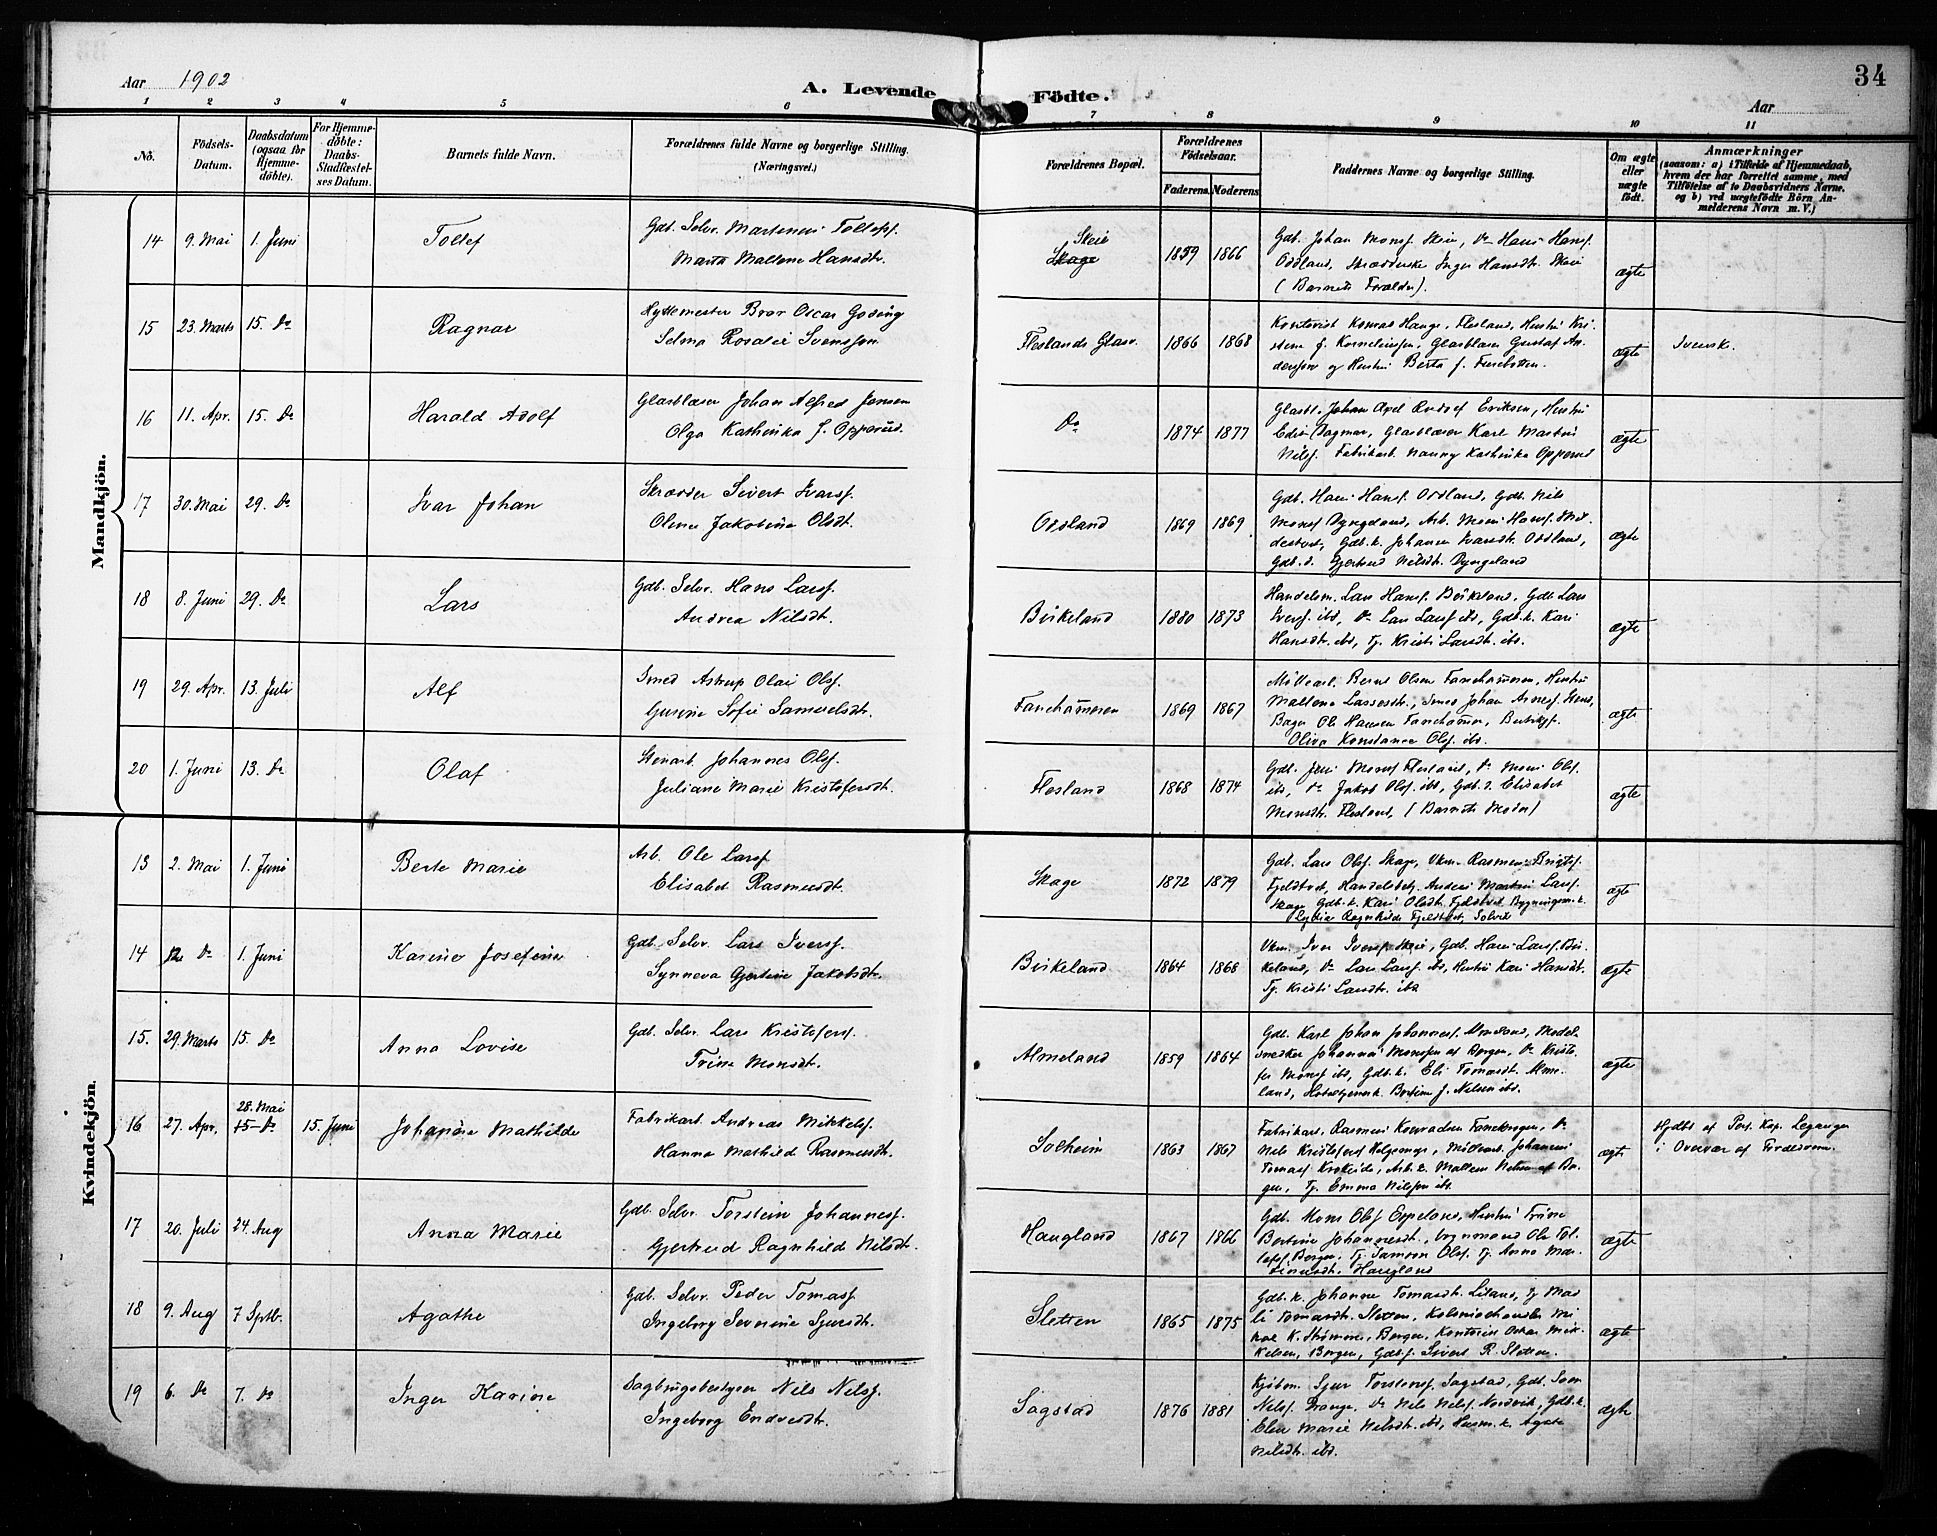 34
Aar 1902
A. Levende Födte.
Aar
1 2 3 4 5 6 7 8 9 10 11
No.
Födsels-
Datum.
Daabsdatum
(ogsaa for
Hjemme-
döbte).
For Hjemme-
döbte:
Daabs-
Stadfæstel-
ses Datum.
Barnets fulde Navn.
Forældrenes fulde Navne og borgerlige Stilling.
(Næringsvei.)
Forældrenes Bopæl.
Forældrenes
Födselsaar.
Faderens. Moderens.
Faddernes Navne og borgerlige Stilling.
Om ægte
eller
uægte
födt.
Anmærkninger
(saasom: a) i Tilfælde af Hjemmedaab,
hvem der har forrettet samme, med
Tilföielse af to Daabsvidners Navne,
og b) ved uægtefödte Börn An-
melderens Navn m.V.)
Mandkjön.
14 9. Mai 1. Juni Tollef
Gdb. Selv. Martinus Tollefs.
Marta Maltene Hansdt.
Skeie
Skage 1859 1866
Gdb. Johan Monss. Skeie, Do Hans Hanss.
Oddland, Skrædderske Inger Hansdt. Skeie
(Barnets Forældre).
ægte
15 23. Marts 15. Do Ragnar
Hyttemester Bror Oscar Goding
Selma Rosalie Svensson
Fleslands Glasv. 1866 1868
Kontorist Konrad Hauge, Flesland, Hustru Kri-
stene f. Korneliussen, Glasblæser Gustaf An-
dersson og Hustru Berta f. Furebotten.
ægte Svensk.
16 11. Apr. 15. Do Harald Adolf
Glasblæser Johan Alfred Jansen
Olga Kathinka f. Opperud.
Do 1874 1877
Glasbl. Johan Axel Rudolf Eriksen, Hustru
Edit Dagmar, Glasblæser Karl Martin
Nilss. Fabrikarb. Nanny Kathinka Opperud
ægte
17 30. Mai 29. Do Ivar Johan
Skrædder Sivert Ivarss.
Oline Jakobine Olsdt.
Oddland 1869 1869
Gdb. Hans Hanss. Oddland, Gdb. Nils
Monss. Dyngeland, Arb. Mons Hanss. Mid-
destvet, Gdb.k. Johanne Ivarsdt. Oddland,
Gdb.d. Gjertrud Nilsdt. Dyngeland
ægte
18 8. Juni 29. Do Lars
Gdb. Selv. Hans Larss.
Andrea Nilsdt.
Birkeland 1880 1873
Handelsm. Lars Hanss. Birkeland, Gdb. Lars
Iverss. ibd, Do Lars Larss. ibd, Gdb.k. Kari
Hansdt. ibd, Tj. Kristi Larsdt. ibd.
ægte
19 29. Apr. 13. Juli Alf
Smed Astrup Olai Olss.
Gurine Sofie Samuelsdt.
Fanehammeren 1869 1867
Møllearb. Bernt Olsen Fanehammeren, Hustru
Maltene Lassesdt., Smed Johan Arness. Stend,
Bager Ole Hansen Fanehammeren,
Oliva Konstance Olss. ibd.
ægte
20 1. Juni 13. Do Olaf
Stenarb. Johannes Olss.
Juliane Marie Kristofersdt.
Flesland 1868 1874
Gdb. Jens Monss. Flesland, Do Mons Olss.
ibd, Do Jakob Olss. ibd, Gdb.d. Elisabet
Monsdt. Flesland, (Barnets Moder)
ægte
Kvindekjön.
13 2. Mai 1. Juni Berte Marie
Arb. Ole Larss.
Elisabet Rasmusdt.
Skage 1872 1879
Gdb. Lars Olss. Skage, Ukm. Rasmus
Fjeldtvet, Handelsbetj. Anders Martin Larss.
Skage Gdb.k. Kari Olsdt. Fjeldtvet Bygningsm.k.
Lydia Ragnhilde Fjeldtvet, Solvik
ægte
14 12. Do 1. Juni Karine Josefine
Gdb. Selv. Lars Iverss.
Synneva Gjertine Jakobsdt.
Birkeland 1864 1868
Ukm. Iver Iverss. Skeie, Gdb. Hans Larss. Bir-
keland, Do Lars Larss. ibd, Hustru Kari Hansdt.
Tj. Kristi Larsdt. ibd
ægte
15. 29. Marts 15. Do Anna Lovise
Gdb. Selv. Lars Kristoferss.
Trine Monsdt.
Almeland 1859 1864
Gdb. Karl Johan Johanness. Almeland, Model-
snedker Johannes Monssen af Bergen, Do Kristo-
fer Monss. ibd, Gdb.k. Eli Tomasdt. Alme-
land, Hotelstjenerk. Bertine f. Nilsen ibd.
ægte
16 27. Apr. 28. Mai
15 Do 15. Juni Johanne Mathilde
Fabrikarb. Andreas Mikkelss.
Hanna Mathild Rasmusdt.
Solheim 1863 1867
Fabrikarb. Rasmus Konradsen Fanebregen, Do
Nils Kristoferss. Helgesmyr, Møllearb. Johannes
Tomass. Krokeide, Arb.k. Maltene Nilsen af Ber-
gen, Tj. Emma Nilssen ibd.
ægte
Hjdbt af Pers. Kap. Leganger
i Overvær af
17 20. Juli 24. Aug Anna Marie
Gdb. Selv. Torstein Johanness.
Gjertrud Ragnhild Nilsdt.
Haugland 1867 1866
Gdb. Mons Olss. Espeland, Hustru Trine
Bertine Johannesdt., Vognmand Ole Tol-
lefss. Bergen, Tj. Samson Olss. Tj. Anna Mar-
tinusdt. Haugland
ægte
18 9. Aug 7 Septb. Agathe
Gdb. Selv. Peder Tomass.
Ingeborg Severine Sjursdt.
Sletten 1865 1875
Gdb.k. Johanne Tomasdt. Litland, Tj Mar-
li Tomasdt. Sletten, Kolonialhandler Mi-
kal K. Strømmen, Bergen, Kontorist Oskar Mik-
kelsen, Bergen, Gdb.s. Sivert R. Sletten.
ægte
19 6. Do 7. Do Inger Karine
Sagbrugsbestyrer Nils Nilss.
Ingeborg Endresdt.
Sagstad 1876 1881
Kjøbm. Sjur Torstenss. Sagstad, Gdb. Sven
Nilss. Drange, Do Nils Nilss. Nordvik, Gdb.k.
Elen Marie Nilsdt. ibd, Husm.k. Agate
Nilsdt. ibd.
ægte